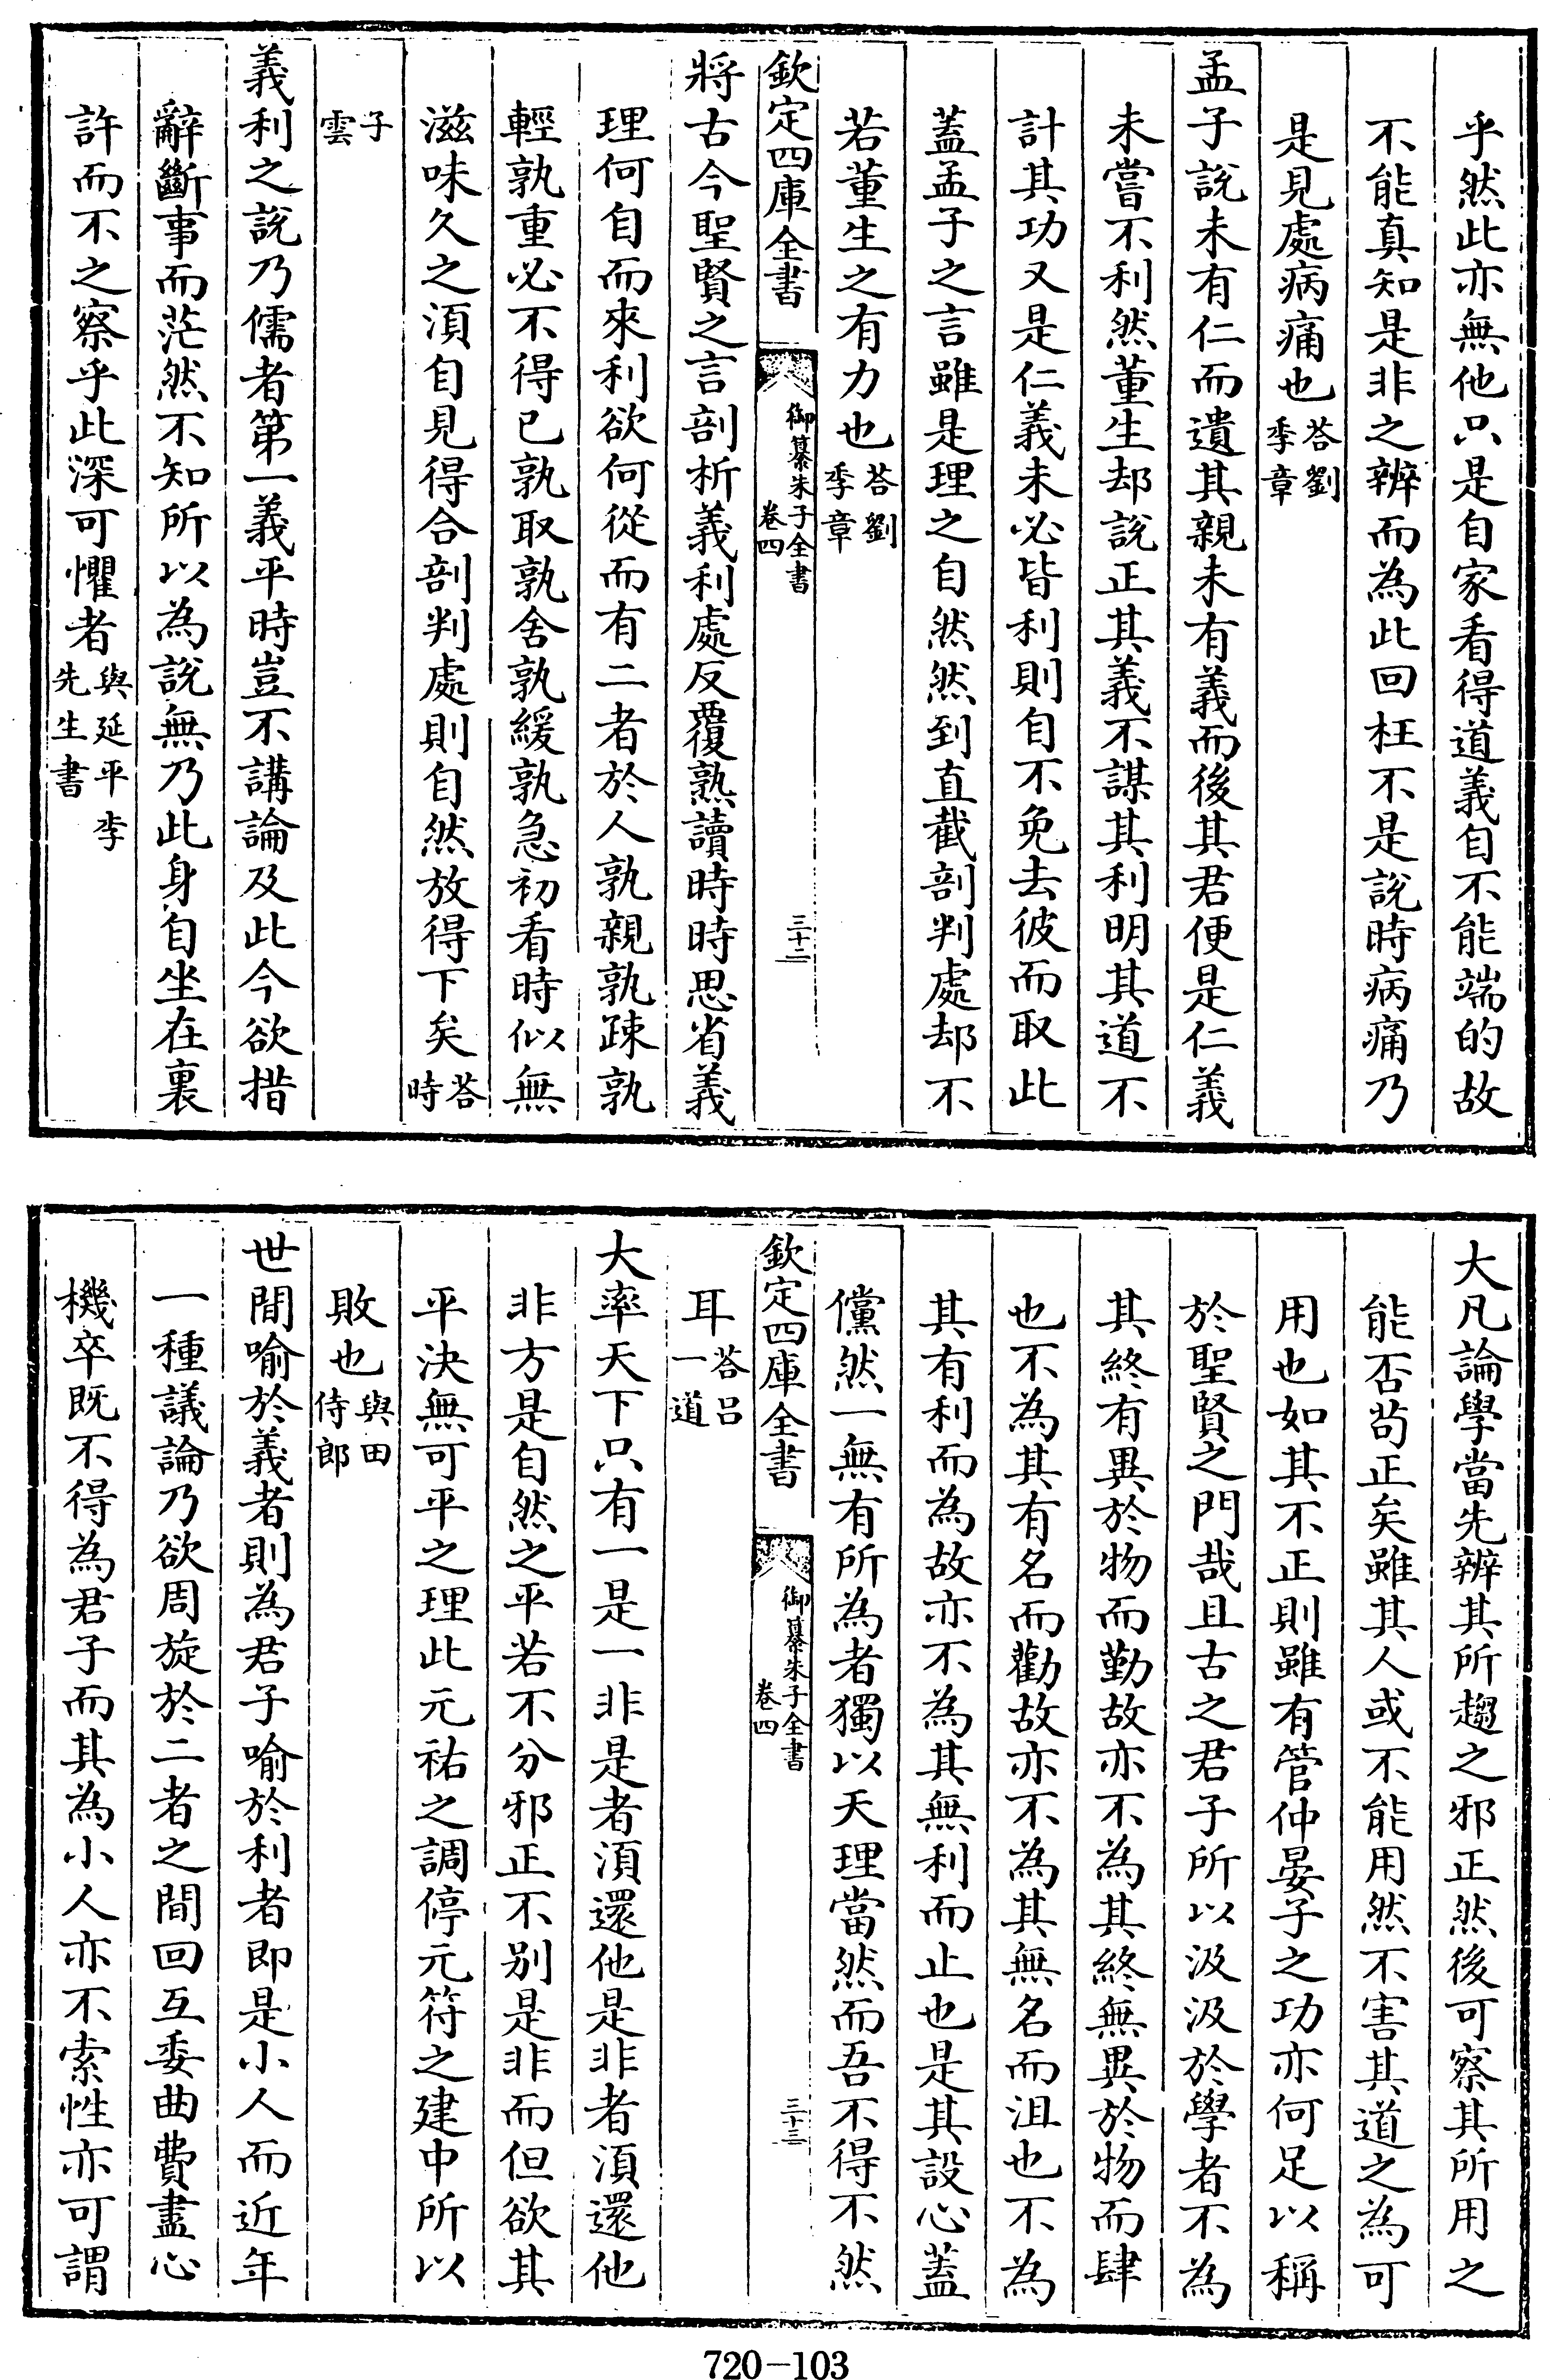 乎然此亦無他只是自家看得道義自不能端的故
不能真知是非之辨而為此回枉不是說時病痛乃
是見處病痛也答劉季章
孟子說未有仁而遺其親未有義而後其君便是仁義
未嘗不利然董生却說正其義不謀其利明其道不
計其功又是仁義未必皆利則自不免去彼而取此
蓋孟子之言雖是理之自然然到直截剖判處却不
若董生之有力也答劉季章
欽定四庫全書 御纂朱子全書卷四 三十二
將古今聖賢之言剖析義利處反覆熟讀時時思省義
理何自而來利欲何從而有二者於人孰親孰疎孰
輕孰重必不得已孰取孰舍孰緩孰急初看時似無
滋味久之須自見得合剖判處則自然放得下矣答時
子雲
義利之說乃儒者第一義平時豈不講論及此今欲措
辭斷事而茫然不知所以為說無乃此身自坐在裏
許而不之察乎此深可懼者與延平李先生書
大凡論學當先辨其所趨之邪正然後可察其所用之
能否苟正矣雖其人或不能用然不害其道之為可
用也如其不正則雖有管仲晏子之功亦何足以稱
於聖賢之門哉且古之君子所以汲汲於學者不為
其終有異於物而勤故亦不為其終無異於物而肆
也不為其有名而勸故亦不為其無名而沮也不為
其有利而為故亦不為其無利而止也是其設心蓋
儻然一無有所為者獨以天理當然而吾不得不然
欽定四庫全書 御纂朱子全書卷四 三十三
耳答呂一道
大率天下只有一是一非是者須還他是非者須還他
非方是自然之平若不分邪正不別是非而但欲其
平決無可平之理此元祐之調停元符之建中所以
敗也與田侍郎
世間喻於義者則為君子喻於利者即是小人而近年
一種議論乃欲周旋於二者之間回互委曲費盡心
機卒既不得為君子而其為小人亦不索性亦可謂
720-103